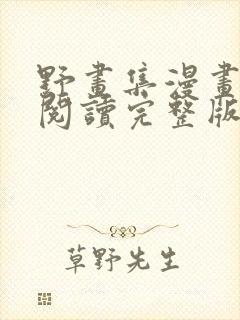 野畫集漫畫
閱讀完整版
草野先生